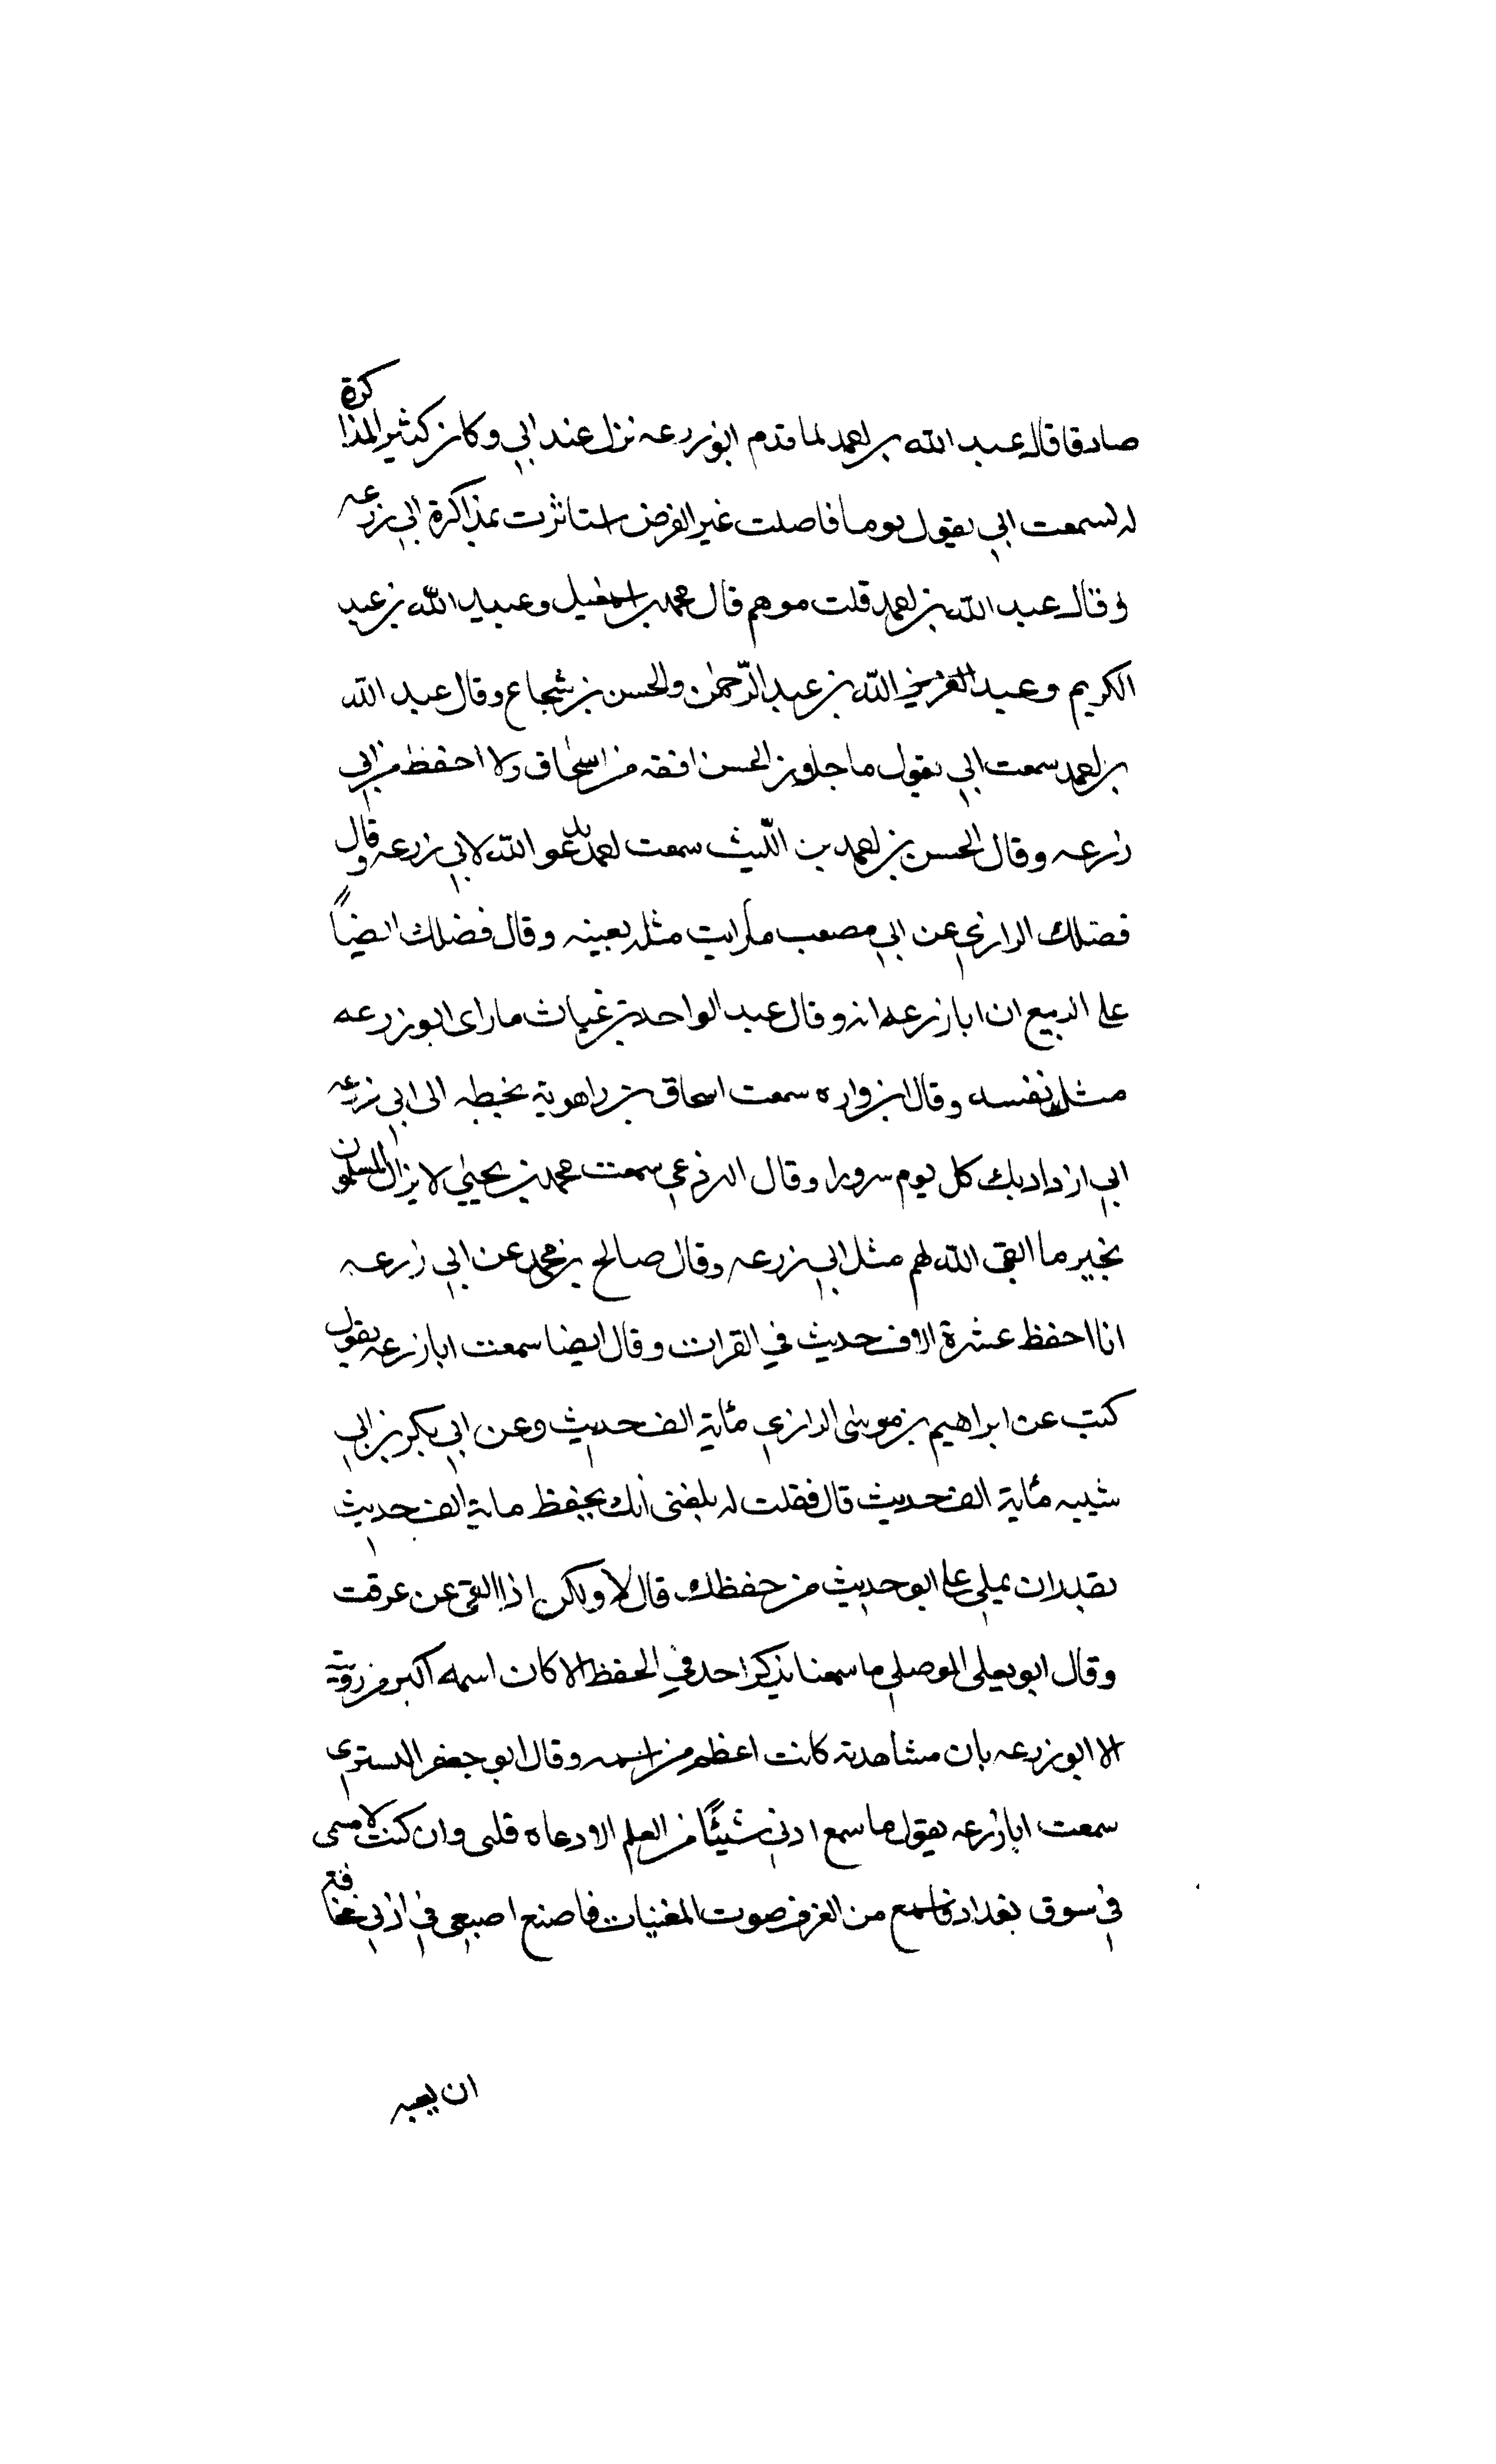 صادقا قال عبد الله بن احمد لما قدم ابو زرعه نزل عند ابي وكان كثير المذاكرة
له لسمعت ابي يقول يوما فاصلت غير الفرض استاثرت بمذاكرة ابي زرعه
وقال عبد الله بن احمد قلت موهم قال محمد بن اسمعيل وعبيد الله بن عبد
الكريم وعبد الله بن عبد الرحمن والحسن بن شجاع وقال عبد الله
بن احمد سمعت ابي يقول ما جاوز الحسن افقه من اسحاق ولا احفظ من ابي
زرعه وقال الحسن بن احمد بن الليث سمعت احمد يدعو الله لابي زرعه وقال
فضلك الرازي عن ابي مصعب ما رايت مثله بعينه وقال فضلك ايضاً
على الربيع ان ابا زرعه انه وقال عبد الواحد بن غياث ما راى ابو زرعه
مثل نفسه وقال ابن واره سمعت اسحاق بن راهوية بخطه الى ابي زرعه
اني ازداد بك كل يوم سرورا وقال البرذعي سمعت محمد بن يحيى لا يزال المسلمون
بخير ما ابقى الله لهم مثل ابي زرعه وقال صالح بن محمد عن ابي زرعه
انا احفظ عشرة الاف حديث في القرات وقال ايضا سمعت ابا زرعه يقول
كتبت عن ابراهيم بن موسى الرازي مأية الف حديث وعن ابي بكر بن ابي
شيبه مأية الف حديث قال فقلت له بلغني انك تحفظ ماية الف حديث
تقدر ان تملي علي ابو حديث من حفظك قال لا ولكن اذا القى عن عرفت
وقال ابو يعلى الموصلي ما سمعنا يذكر احد في الحفظ الا كان اسمه اكبر من رؤيته
الا ابو زرعه بان مشاهدته كانت اعظم من اسمه وقال ابو جعفر التستري
سمعت ابا زرعه يقول ما سمع اذني شيئاً من العلم الا وعاه قلبي وان كنت لامشى
في سوق بغداد فاسمع من الغرف صوت المغنيات فاصنع اصبعي في اذني مخافة
ان يعيه